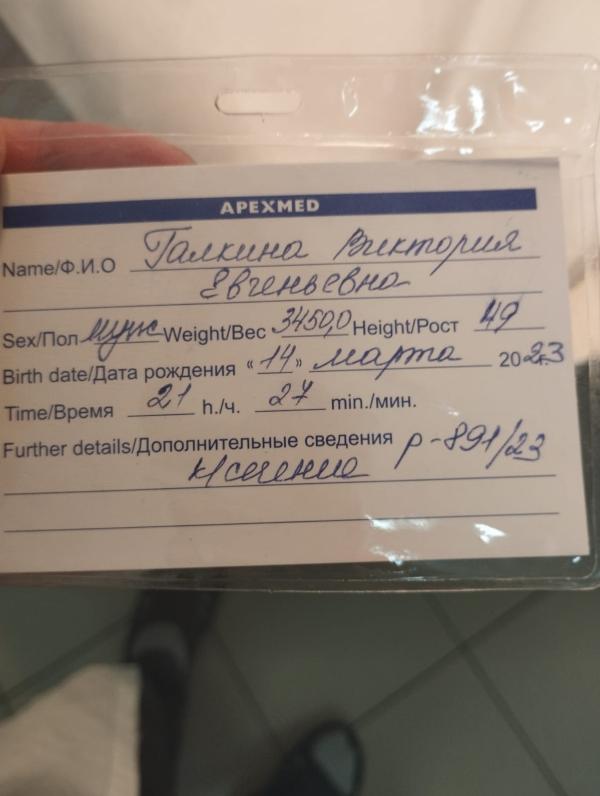 APEXMED
Name/Ф.И.О Галкина Виктория
Евгеньевна
Sex/Пол муж Weight/Вес 3450,0 Height/Рост 49
Birth date/Дата рождения «14» марта 2023
Time/Время 21 h./ч. 27 min./мин.
Further details/Дополнительные сведения р-891/23